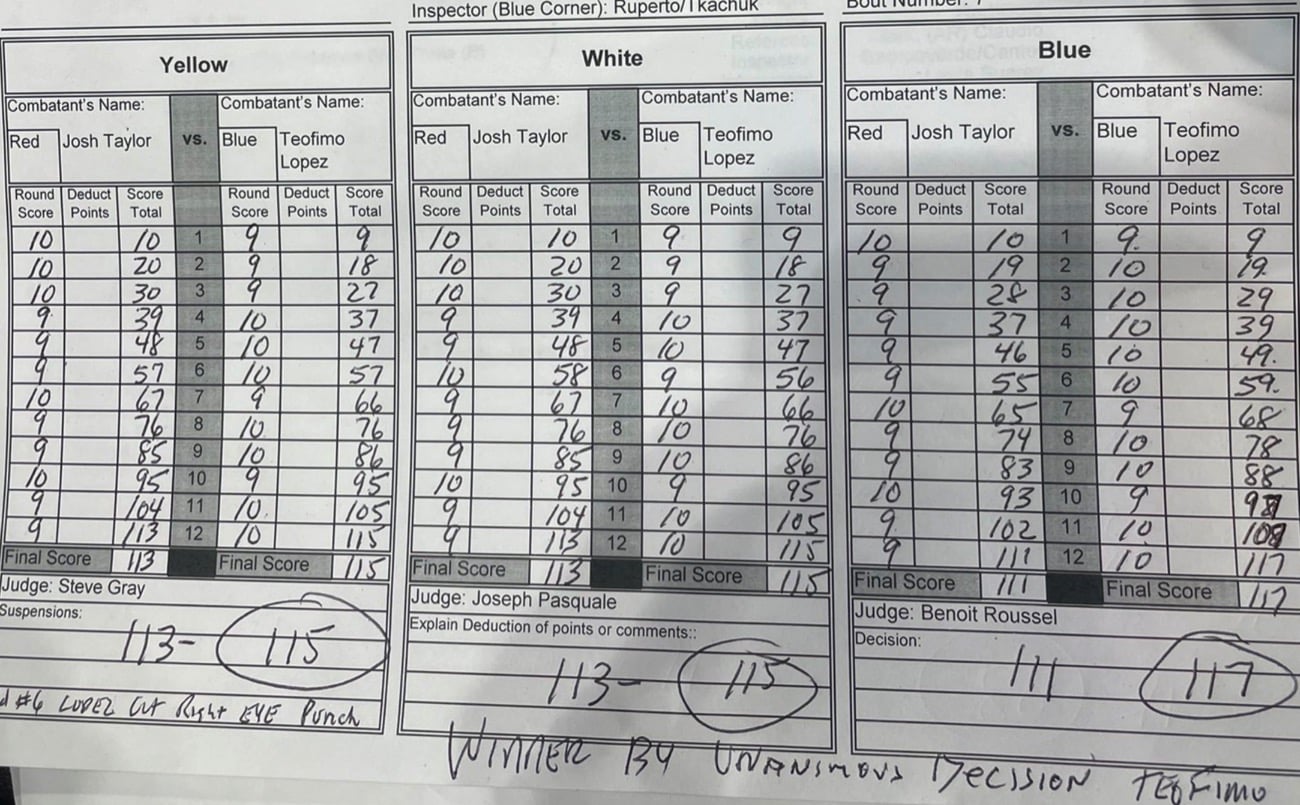 Inspector (Blue Corner): Ruperto/Tkachuk
Yellow
Combatant's Name: Combatant's Name:
Red Josh Taylor vs. Blue Teofimo Lopez
Round Score Deduct Points Score Total Round Score Deduct Points Score Total
10 10 1 9 9
10 20 2 9 18
10 30 3 9 27
9 39 4 10 37
9 48 5 10 47
9 57 6 10 57
10 67 7 9 66
9 76 8 10 76
9 85 9 10 86
10 95 10 9 95
9 104 11 10 105
9 113 12 10 115
Final Score 113 Final Score 115
Judge: Steve Gray
Suspensions:
113- 115
#6 LOPEZ Cut Right EYE Punch
White
Combatant's Name: Combatant's Name:
Red Josh Taylor vs. Blue Teofimo Lopez
Round Score Deduct Points Score Total Round Score Deduct Points Score Total
10 10 1 9 9
10 20 2 9 18
10 30 3 9 27
9 39 4 10 37
9 48 5 10 47
10 58 6 9 56
9 67 7 10 66
9 76 8 10 76
9 85 9 10 86
10 95 10 9 95
9 104 11 10 105
9 113 12 10 115
Final Score 113 Final Score 115
Judge: Joseph Pasquale
Explain Deduction of points or comments::
113- 115
Blue
Combatant's Name: Combatant's Name:
Red Josh Taylor vs. Blue Teofimo Lopez
Round Score Deduct Points Score Total Round Score Deduct Points Score Total
10 10 1 9 9
9 19 2 10 19
9 28 3 10 29
9 37 4 10 39
9 46 5 10 49
9 55 6 10 59
10 65 7 9 68
9 74 8 10 78
9 83 9 10 88
10 93 10 9 97
9 102 11 10 107
9 111 12 10 117
Final Score 111 Final Score 117
Judge: Benoit Roussel
Decision:
111 117
WINNER BY UNANIMOUS DECISSION TEOFIMO